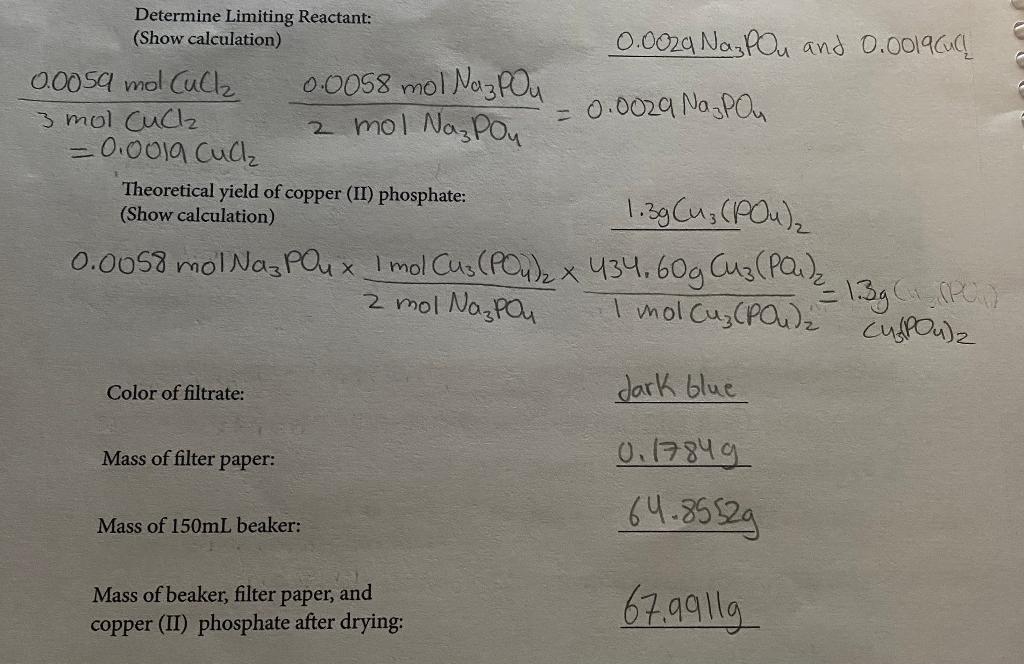 Determine Limiting Reactant:
(Show calculation)
0.0029 Na₃PO₄ and 0.0019 CuCl₂
0.0059 mol CuCl₂
3 mol CuCl₂
= 0.0019 CuCl₂
0.0058 mol Na₃PO₄
2 mol Na₃PO₄
= 0.0029 Na₃PO₄
Theoretical yield of copper (II) phosphate:
(Show calculation)
1.3g Cu₃(PO₄)₂
0.0058 mol Na₃PO₄ x 1 mol Cu₃(PO₄)₂ x 434.60g Cu₃(PO₄)₂ = 1.3g
2 mol Na₃PO₄ 1 mol Cu₃(PO₄)₂
Cu₃(PO₄)₂
Color of filtrate: dark blue
Mass of filter paper: 0.1784g
Mass of 150mL beaker: 64.8552g
Mass of beaker, filter paper, and
copper (II) phosphate after drying: 67.9911g